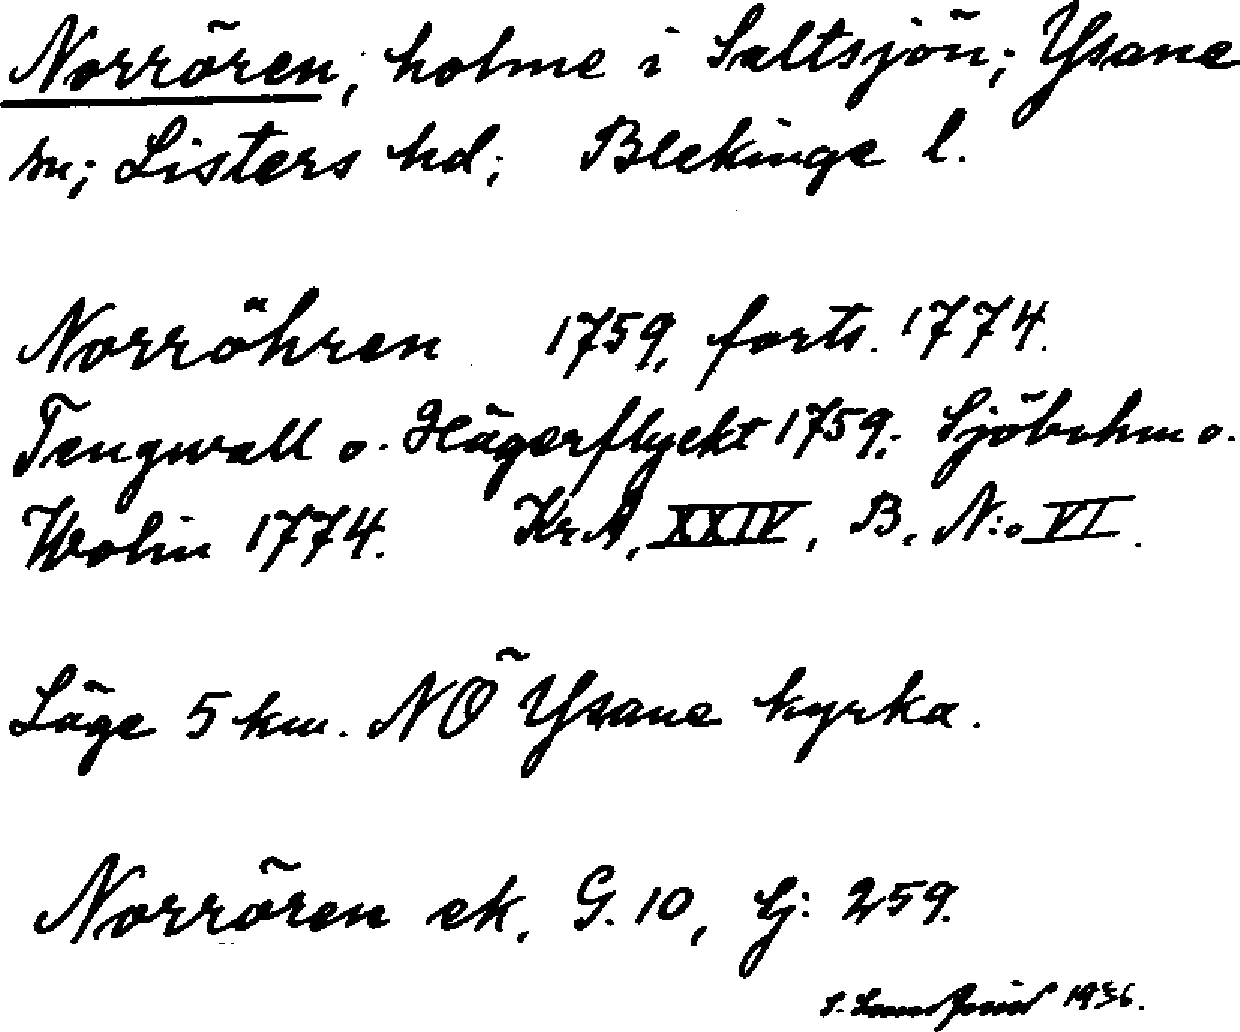 Norrören, holme i Saltsjön; Ysane
sn; Listers hd; Blekinge l.
Norröhren 1759, forts. 1774.
Tengwall o. Hägerflyckt 1759. Sjöbohm o.
Wolin 1774. KrA, XXIV, B, N:o VI.
Läge 5 km. NÖ Ysane kyrka.
Norrören ek. G. 10, bj: 259.
S. 1936.